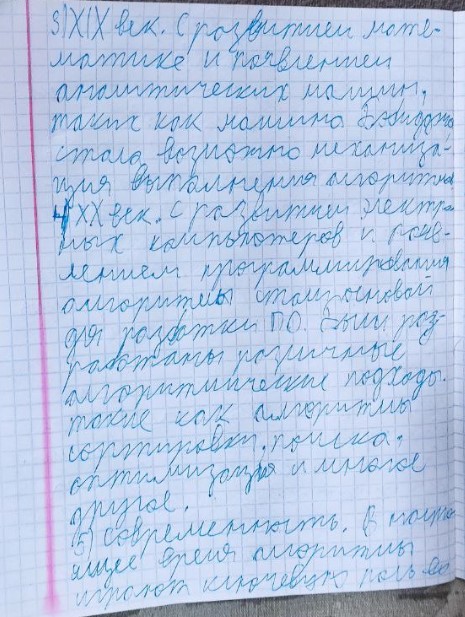 3) XIX век. С развитием мате-
матике и появлением
аналитических машин,
таких как машина Бэббиджа
стало возможно механиза-
ция выполнения алгоритмов
4) XX век. С развитием электро
ных компьютеров и появ-
лением программирования
алгоритмы стали основой
для разботки ПО. Были раз-
работаны различные
алгоритмические подходы.
такие как алгоритмы
сортировки, поиска,
оптимизация и многое
другое.
5) Современность. В настоя
ящее время алгоритмы
играют ключевую роль во